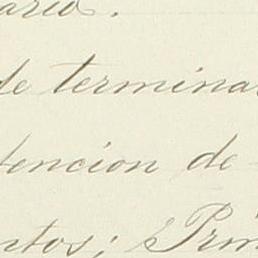 ario.
de termina
tencion de
ntos; Prim